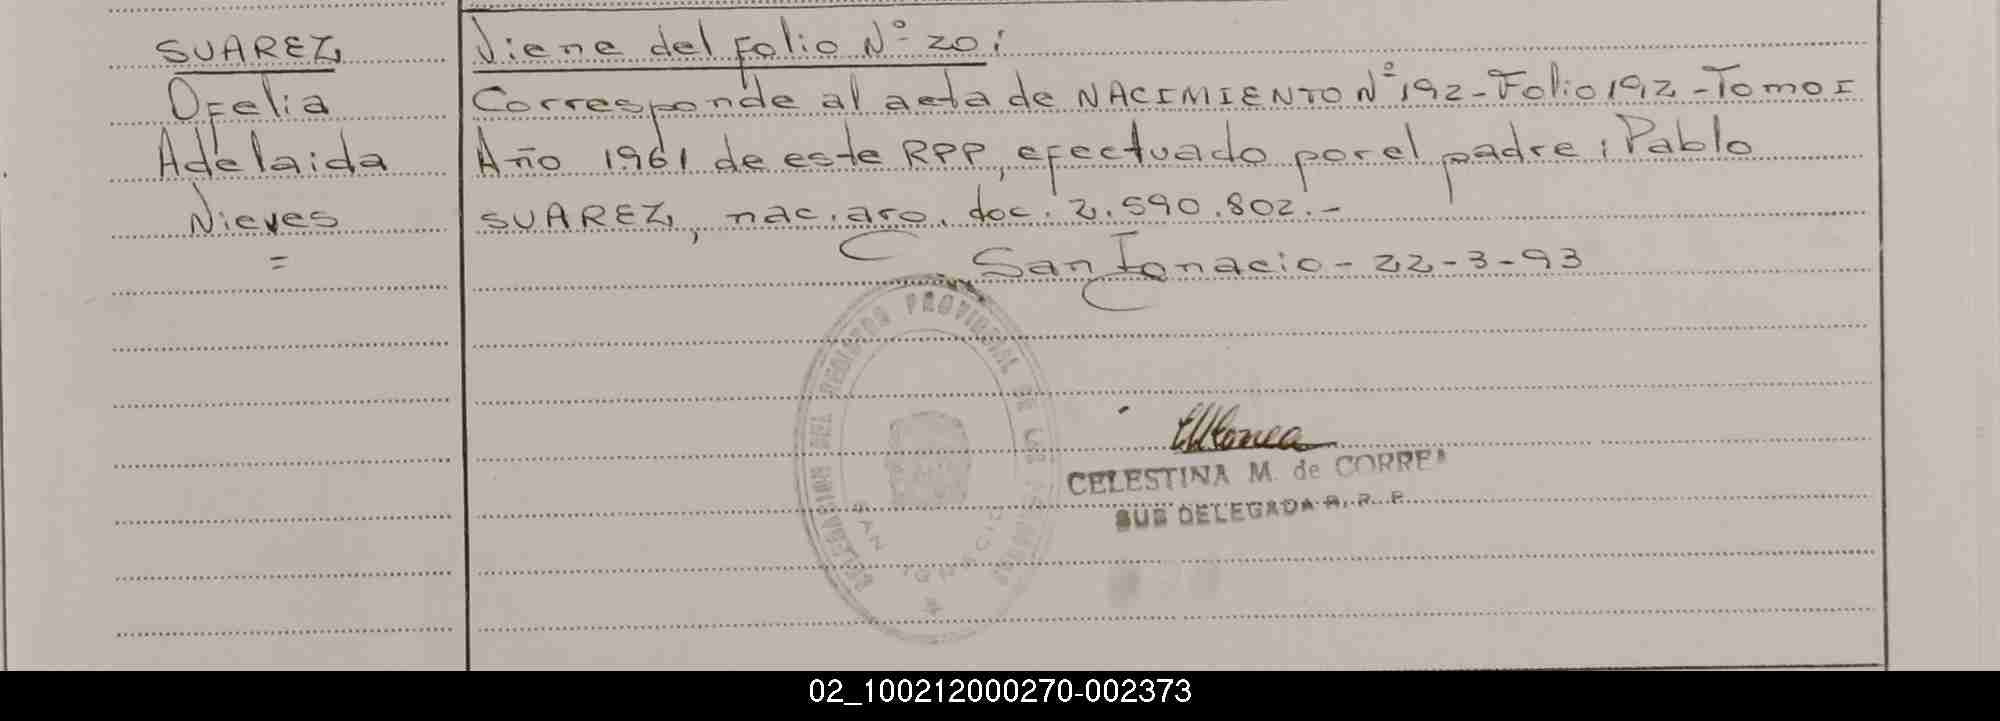 SUAREZ
Ofelia
Adelaida
Nieves
=
Viene del Folio Nº 20:
Corresponde al acta de NACIMIENTO Nº 192-Folio 192-Tomo I
Año 1961 de este RPP, efectuado por el padre: Pablo
SUAREZ, nac. arg. doc. 2.590.802.-
San Ignacio-22-3-93
DELEGACION DEL REGISTRO PROVINCIAL DE LAS
SAN IGNACIO
CELESTINA M. de CORREA
SUB DELEGADA R. P. P.
02_100212000270-002373